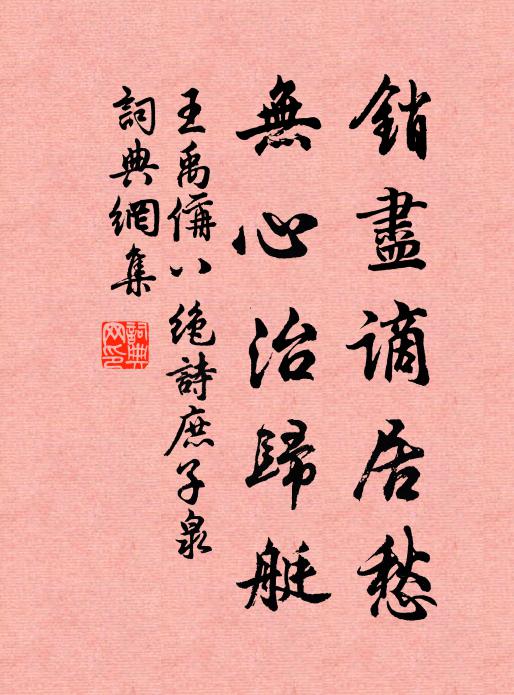 銷盡謫居愁
無心治歸艇
王禹偁八絶詩庶子泉
詞典網集
詞典网印